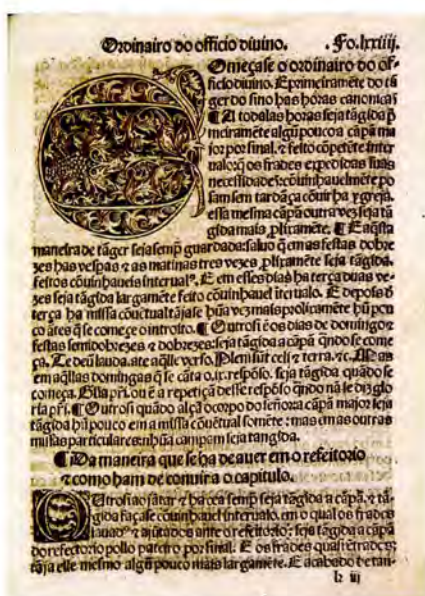 Ordinairo do officio diuino. . Fo. lxxiiij.
Omeçase o ordinairo do of-
ficio diuino. E primeiramẽte do tã
ger do sino has horas canonicas
¶ A todalas horas seja tãgida p̃
meiramẽte algũ pouco a cãpã ma
jor por sinal. ⁊ feito cõpetẽte inter
ualo: q̃ os frades expedidas suas
necessidades: cõuinhauelmẽte po
sam sem tardãça cõuir ha ygreja.
essa mesma cãpã outra vez seja tã
gida mais plixamẽte. ¶ E aq̃sta
maneira de tãger seja semp̃ guardada: saluo q̃ em as festas dobre
zes has vesp̃as ⁊ as matinas tres vezes plixamẽte seja tãgida.
feitos cõuinhaueis interual⁹. E em esses dias ha terça duas ve-
zes seja tãgida largamẽte feito cõuinhauel ĩterualo. E depois d̃
terça ha missa cõuẽtual tãjase hũa vez mais prolixamẽte hũ pou
co ãtes q̃ se começe o introito. ¶ Outrosi ẽ os dias de domingo ⁊
festas semidobrezes ⁊ dobrezes: seja tãgida a cãpã q̃ndo se come
ça. Te deũ lauda. ate aq̃lle verso. Pleni sũt celi ⁊ terra. ⁊c. Mas
em aq̃llas domingas q̃ se cãta o. ix. respõso. seja tãgida quãdo se
começa. Glia pr̃i. ou ẽ a repetiçã desse respõso q̃ndo nã se diz glo
ria pr̃i. ¶ Outrosi quãdo alçã o corpo do señor a cãpã major seja
tãgida hũ pouco em a missa cõuẽtual somẽte: mas em as outras
missas particulares nhũa campam seja tangida.
¶ Da maneira que se ha de auer em o refeitorio
⁊ como ham de conuir a o capitulo.
Outrosi ao jãtar ⁊ ha cea semp̃ seja tãgida a cãpã. ⁊ tã-
gida façase cõuinhauel ĩterualo. em o qual os frades
lauad⁹ ⁊ ajũtados ante o refeitorio: seja tãgida a cãpã
do refectorio pollo pateiro por sinal. E os frades quasi ẽtrados:
tãja elle mesmo algũ pouco mais largamẽte. E acabado de tan-
h iij